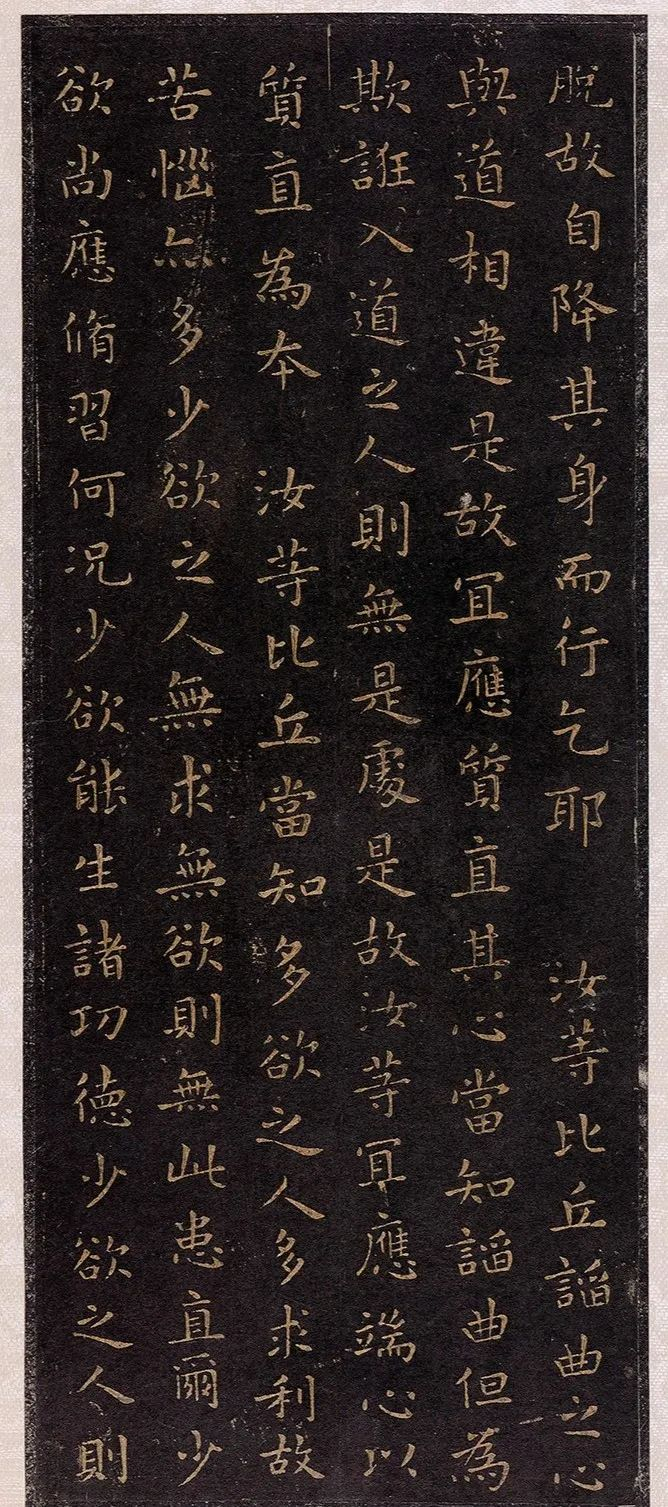 脫故自降其身而行乞耶　汝等比丘諂曲之心
與道相違是故宜應質直其心當知諂曲但為
欺誑入道之人則無是處是故汝等宜應端心以
質直為本　汝等比丘當知多欲之人多求利故
苦惱亦多少欲之人無求無欲則無此患直爾少
欲尚應脩習何況少欲能生諸功德少欲之人則